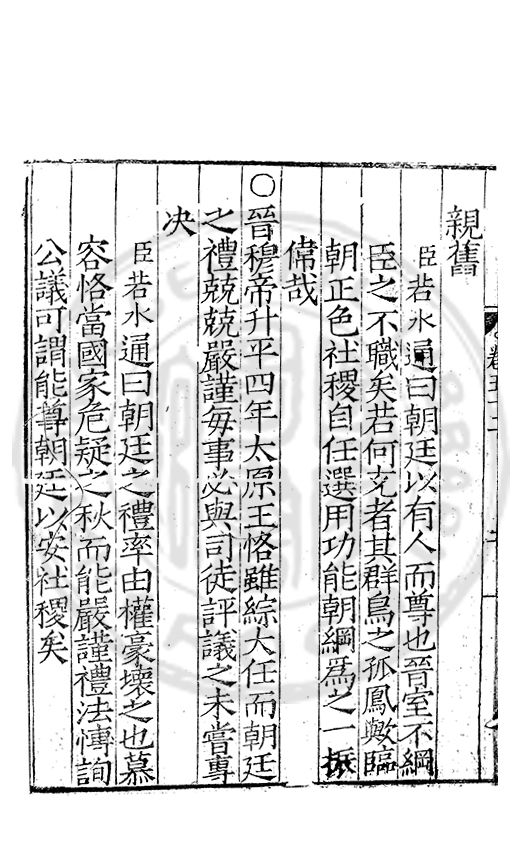 親舊
臣若水通曰朝廷以有人而尊也晉室不綱
臣之不職矣若何充者其群鳥之孤鳳歟臨
朝正色社稷自任選用功能朝綱爲之一振
偉哉
○晉穆帝升平四年太原王恪雖綜大任而朝廷
之禮兢兢嚴謹每事必與司徒評議之未嘗專
决
臣若水通曰朝廷之禮率由權豪壞之也慕
容恪當國家危疑之秋而能嚴謹禮法慱詢
公議可謂能尊朝廷以安社稷矣